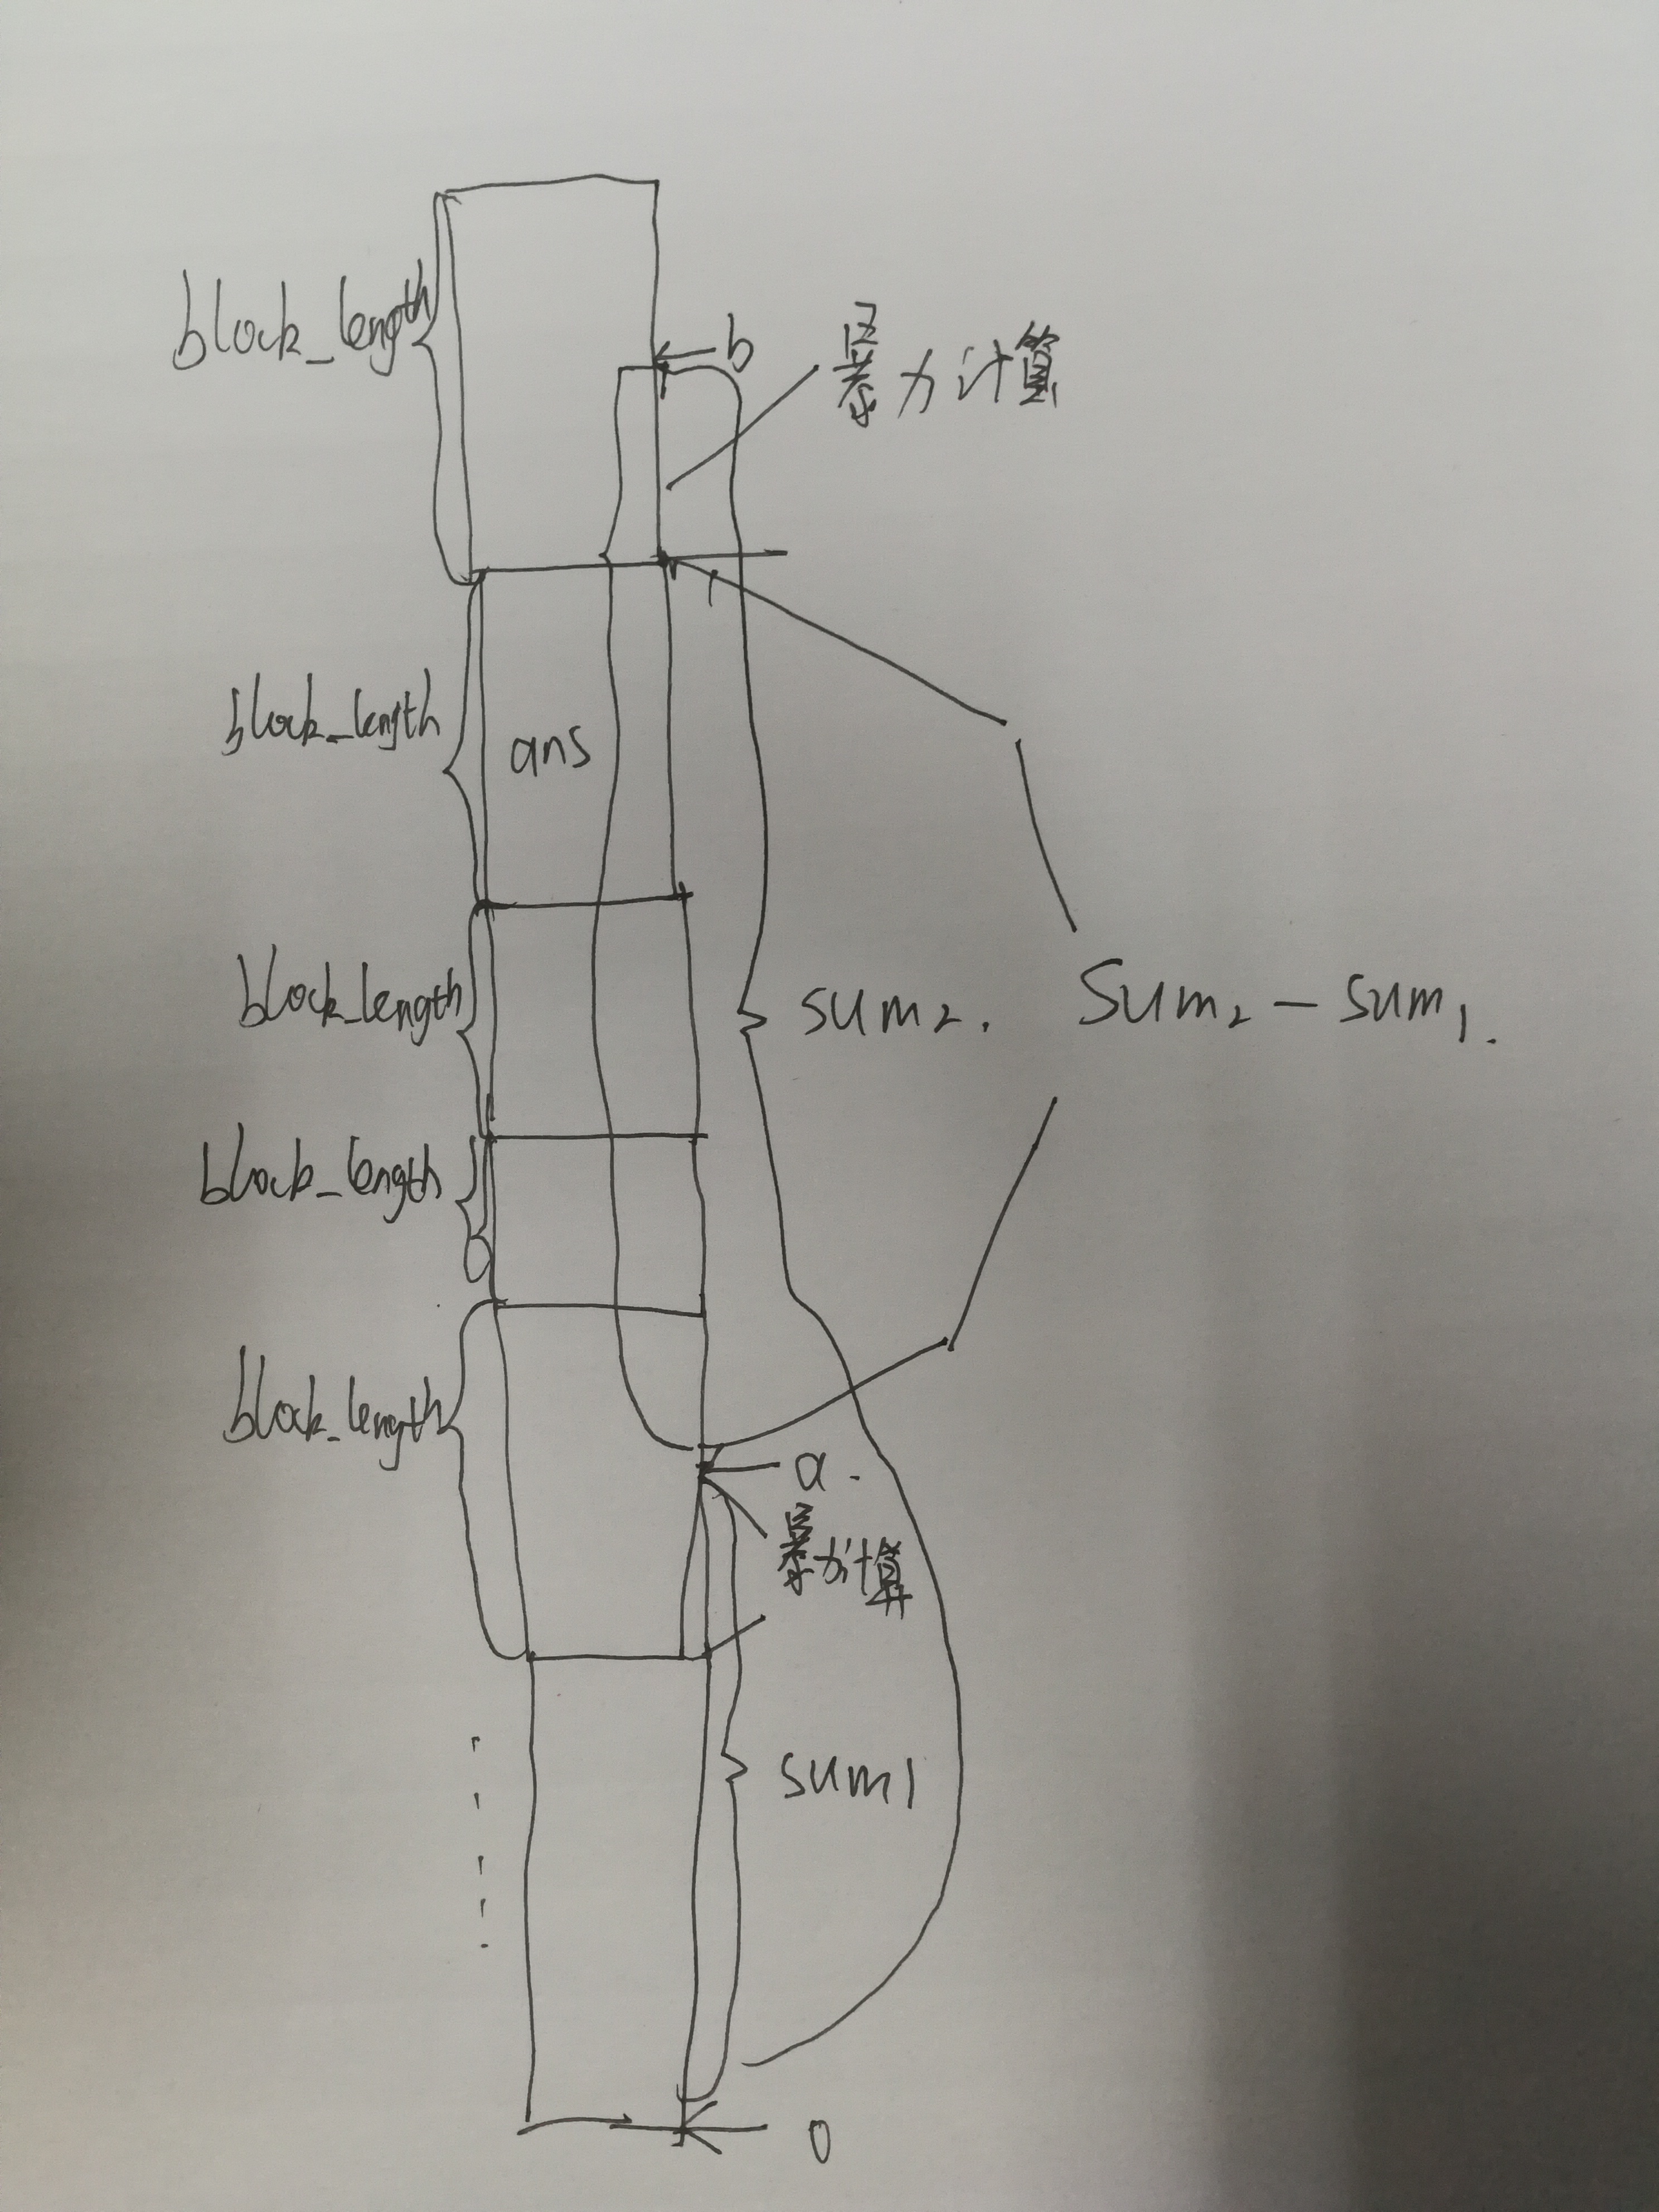 block_length
b
暴力计算
block_length
ans
block_length
sum2.
Sum2-sum1.
block_length
block_length
a.
暴力计算
sum1
0